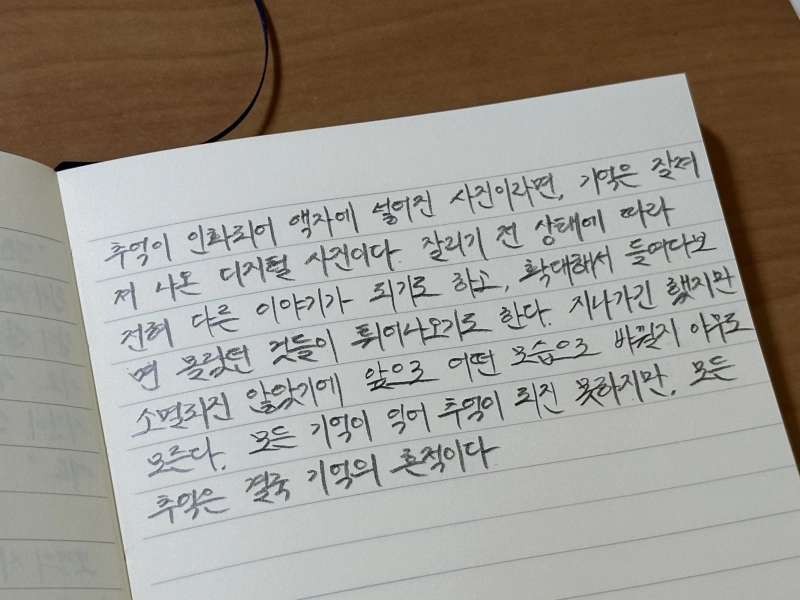 추억이 인화되어 액자에 넣어진 사진이라면, 기억은 잘려
져 나온 디지털 사진이다. 잘리기 전 상태에 따라
전혀 다른 이야기가 되기도 하고, 확대해서 들여다보
면 몰랐던 것들이 튀어나오기도 한다. 지나가긴 했지만
소멸되진 않았기에 앞으로 어떤 모습으로 바뀔지 아무도
모른다. 모든 기억이 익어 추억이 되진 못하지만, 모든
추억은 결국 기억의 흔적이다